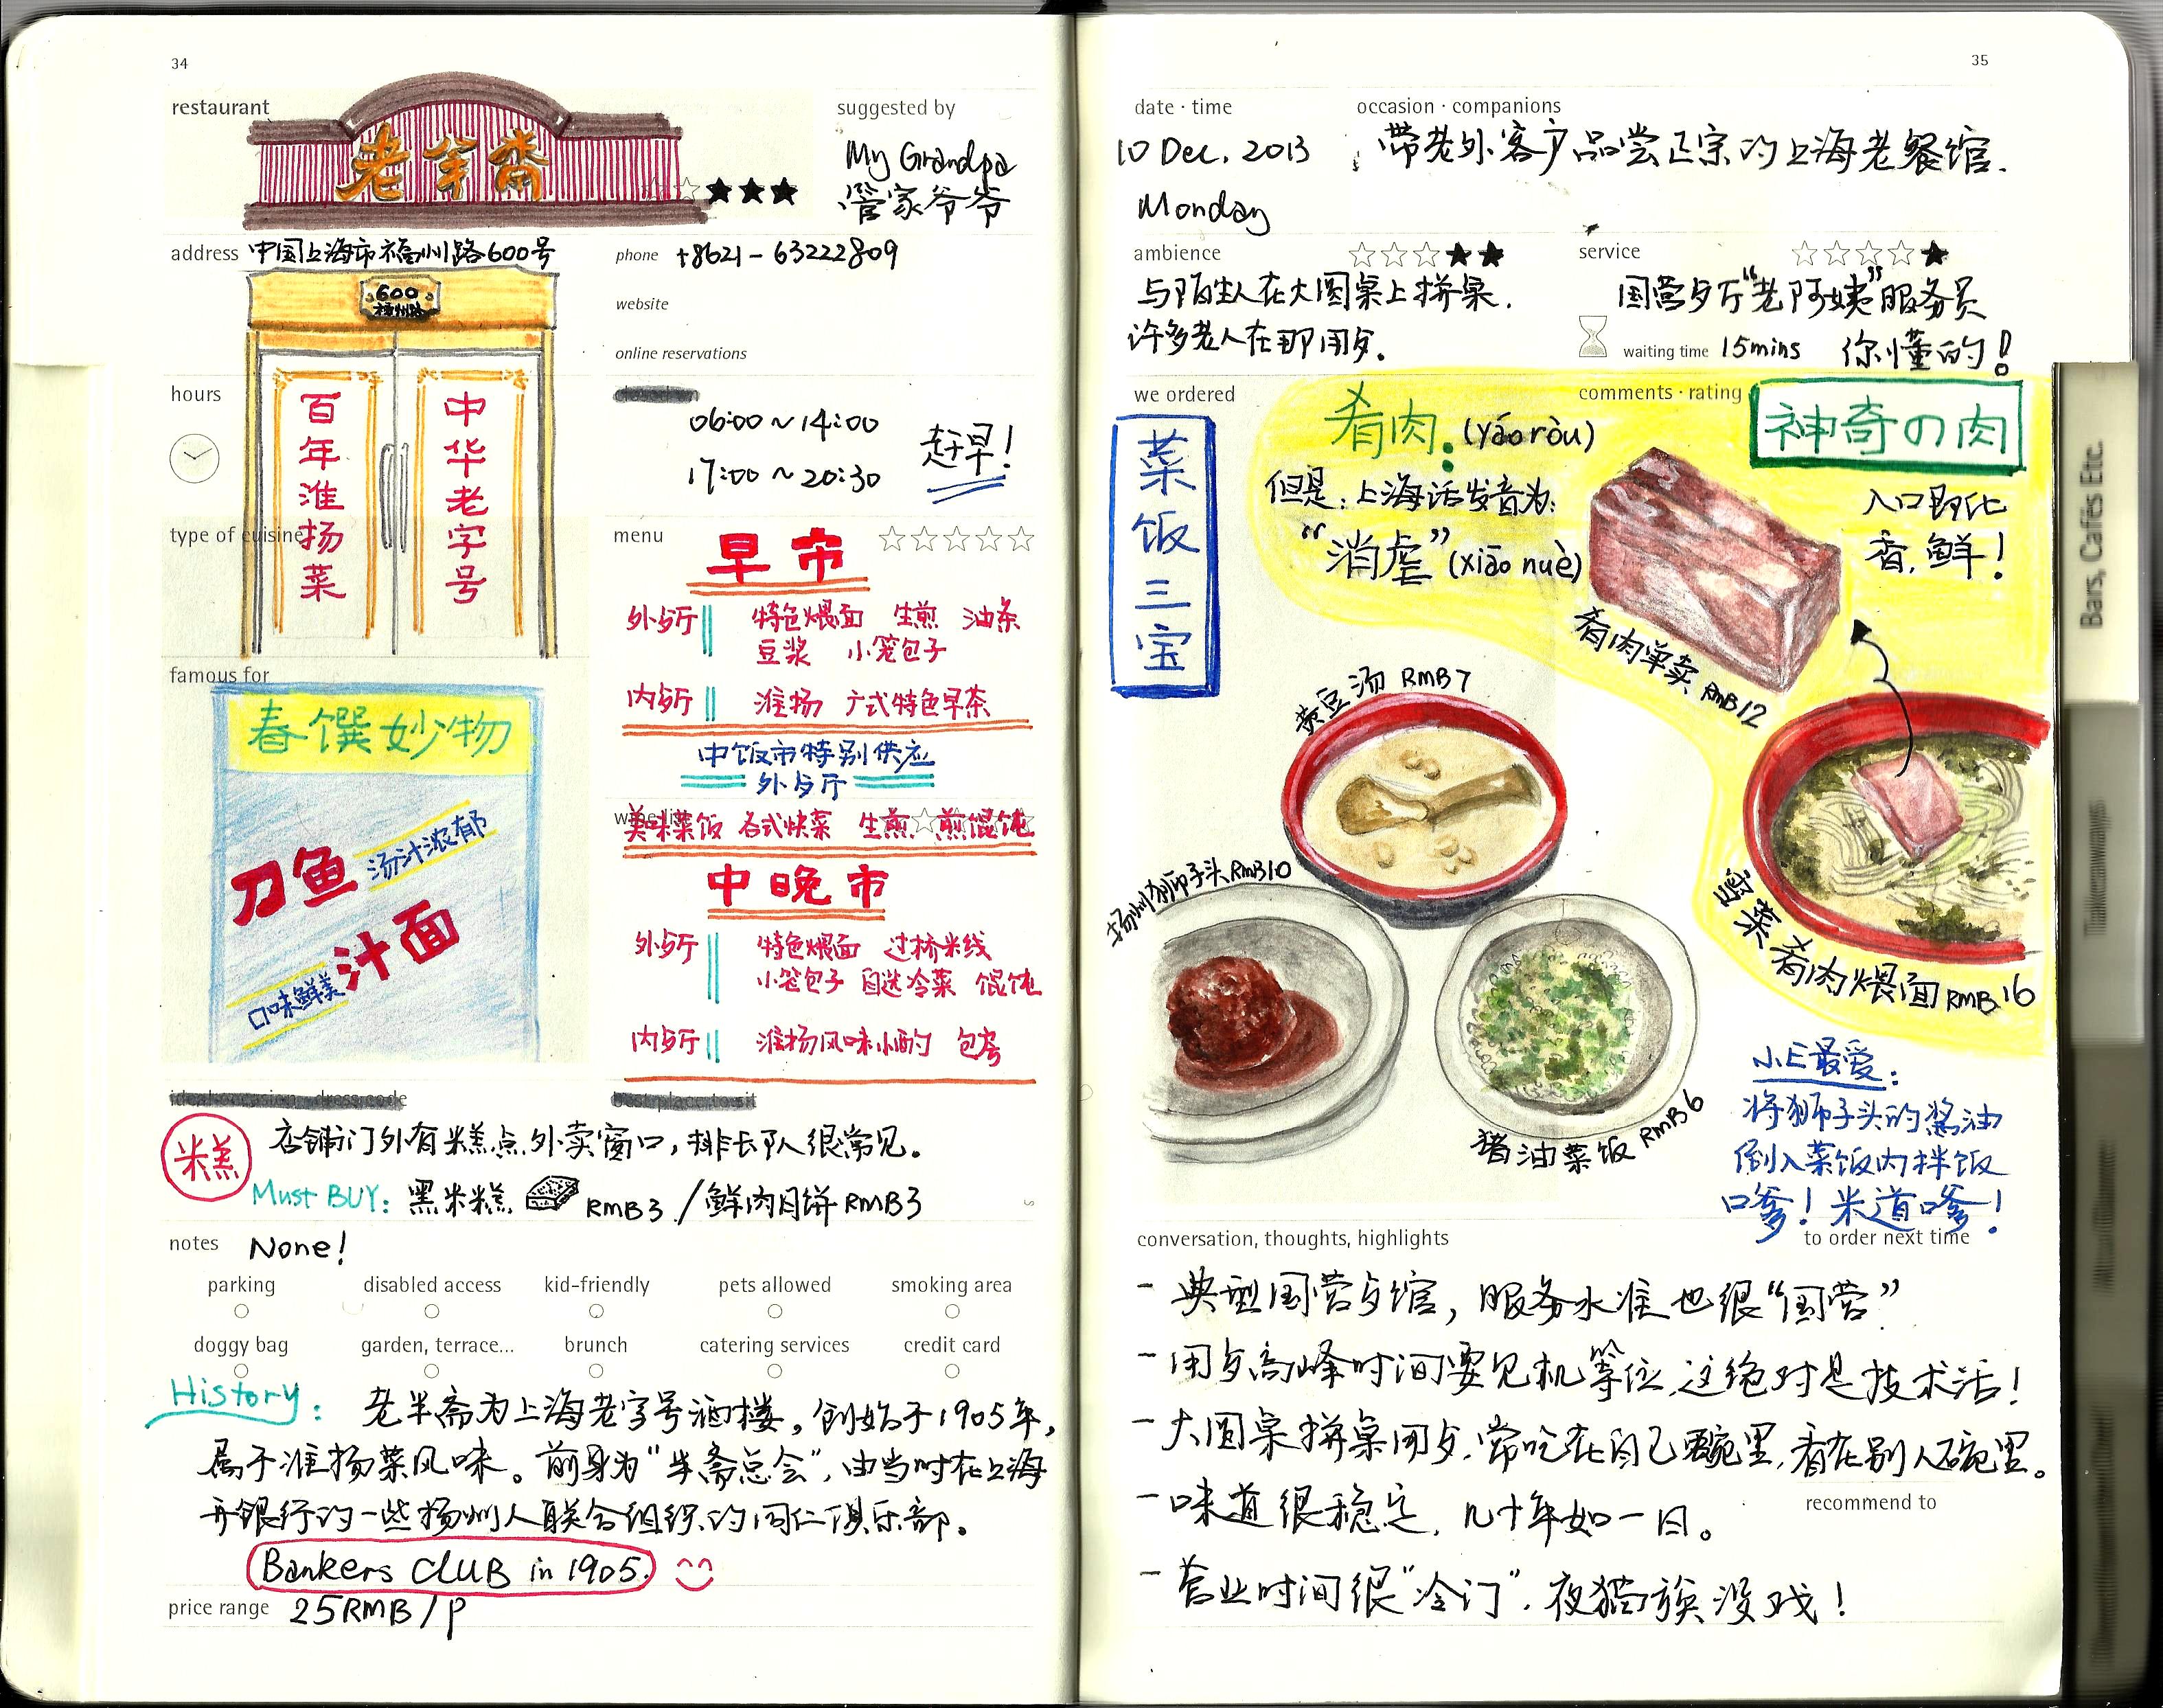 34
restaurant
老半斋
suggested by
My Grandpa
管家爷爷
address 中国上海市福州路600号
phone +8621-63222809
website
online reservations
600
福州路
hours
百年淮扬菜
中华老字号
06:00~14:00
17:00~20:30
赶早!
type of cuisine
menu
早市
外歺厅 特色煨面 生煎 油条
豆浆 小笼包子
内歺厅 淮扬 广式特色早茶
中饭市特别供应
外歺厅
wine list
美味菜饭 各式快菜 生煎 煎馄饨
中晚市
外歺厅 特色煨面 过桥米线
小笼包子 自选冷菜 馄饨
内歺厅 淮扬风味小酌 包房
famous for
春馔妙物
刀鱼 汤汁浓郁
汁面
口味鲜美
ideal occasion, dress code
best place to sit
米糕 店铺门外有糕点外卖窗口,排长队很常见。
Must BUY: 黑米糕 RMB3 / 鲜肉月饼 RMB3
notes None!
parking disabled access kid-friendly pets allowed smoking area
doggy bag garden, terrace... brunch catering services credit card
History: 老半斋为上海老字号酒楼。创始于1905年,
属于淮扬菜风味。前身为"半斋总会",由当时在上海
开银行的一些扬州人联合组织的同仁俱乐部。
Bankers CLUB in 1905.
price range 25RMB/P
35
date · time
10 Dec. 2013
Monday
occasion · companions
带老外客户品尝正宗的上海老餐馆.
ambience
与陌生人在大圆桌上拼桌.
许多老人在那用歺.
service
国营歺厅"老阿姨"服务员
waiting time 15mins 你懂的!
we ordered
comments · rating
菜饭三宝
肴肉: (yáo ròu)
但是:上海话发音为:
"消虐" (xiāo nuè)
神奇の肉
入口即化
香,鲜!
肴肉单卖 RMB12
黄豆汤 RMB7
扬州狮子头 RMB10
猪油菜饭 RMB6
雪菜肴肉煨面 RMB16
小E最爱:
将狮子头的酱油
倒入菜饭内拌饭
嗲!米道嗲!
conversation, thoughts, highlights
to order next time
- 典型国营歺馆,服务水准也很"国营"
- 用歺高峰时间要见机等位,这绝对是技术活!
- 大圆桌拼桌用歺,常吃在自己碗里,看在别人碗里。
- 味道很稳定,几十年如一日。
recommend to
- 营业时间很"冷门",夜猫族没戏!
Bars, Cafés Etc.